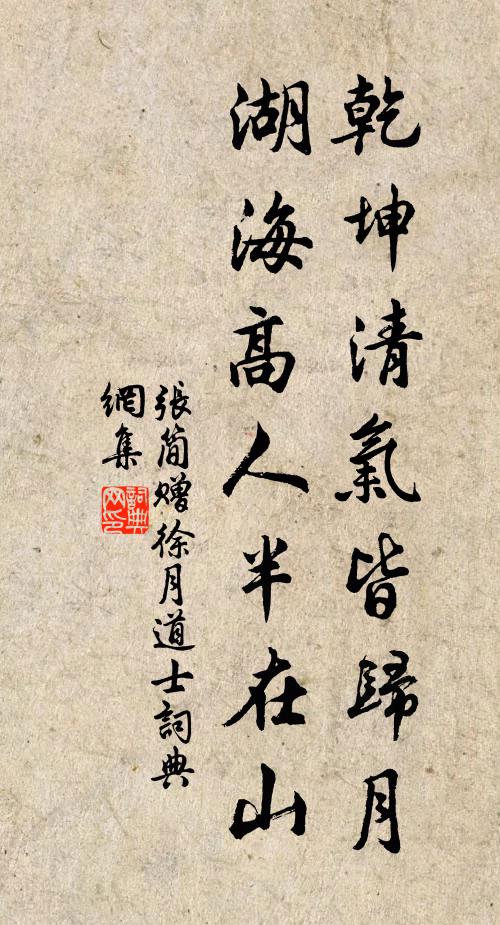 乾坤清氣皆歸月
湖海高人半在山
張簡贈徐月道士詞典
網集
詞典
网印